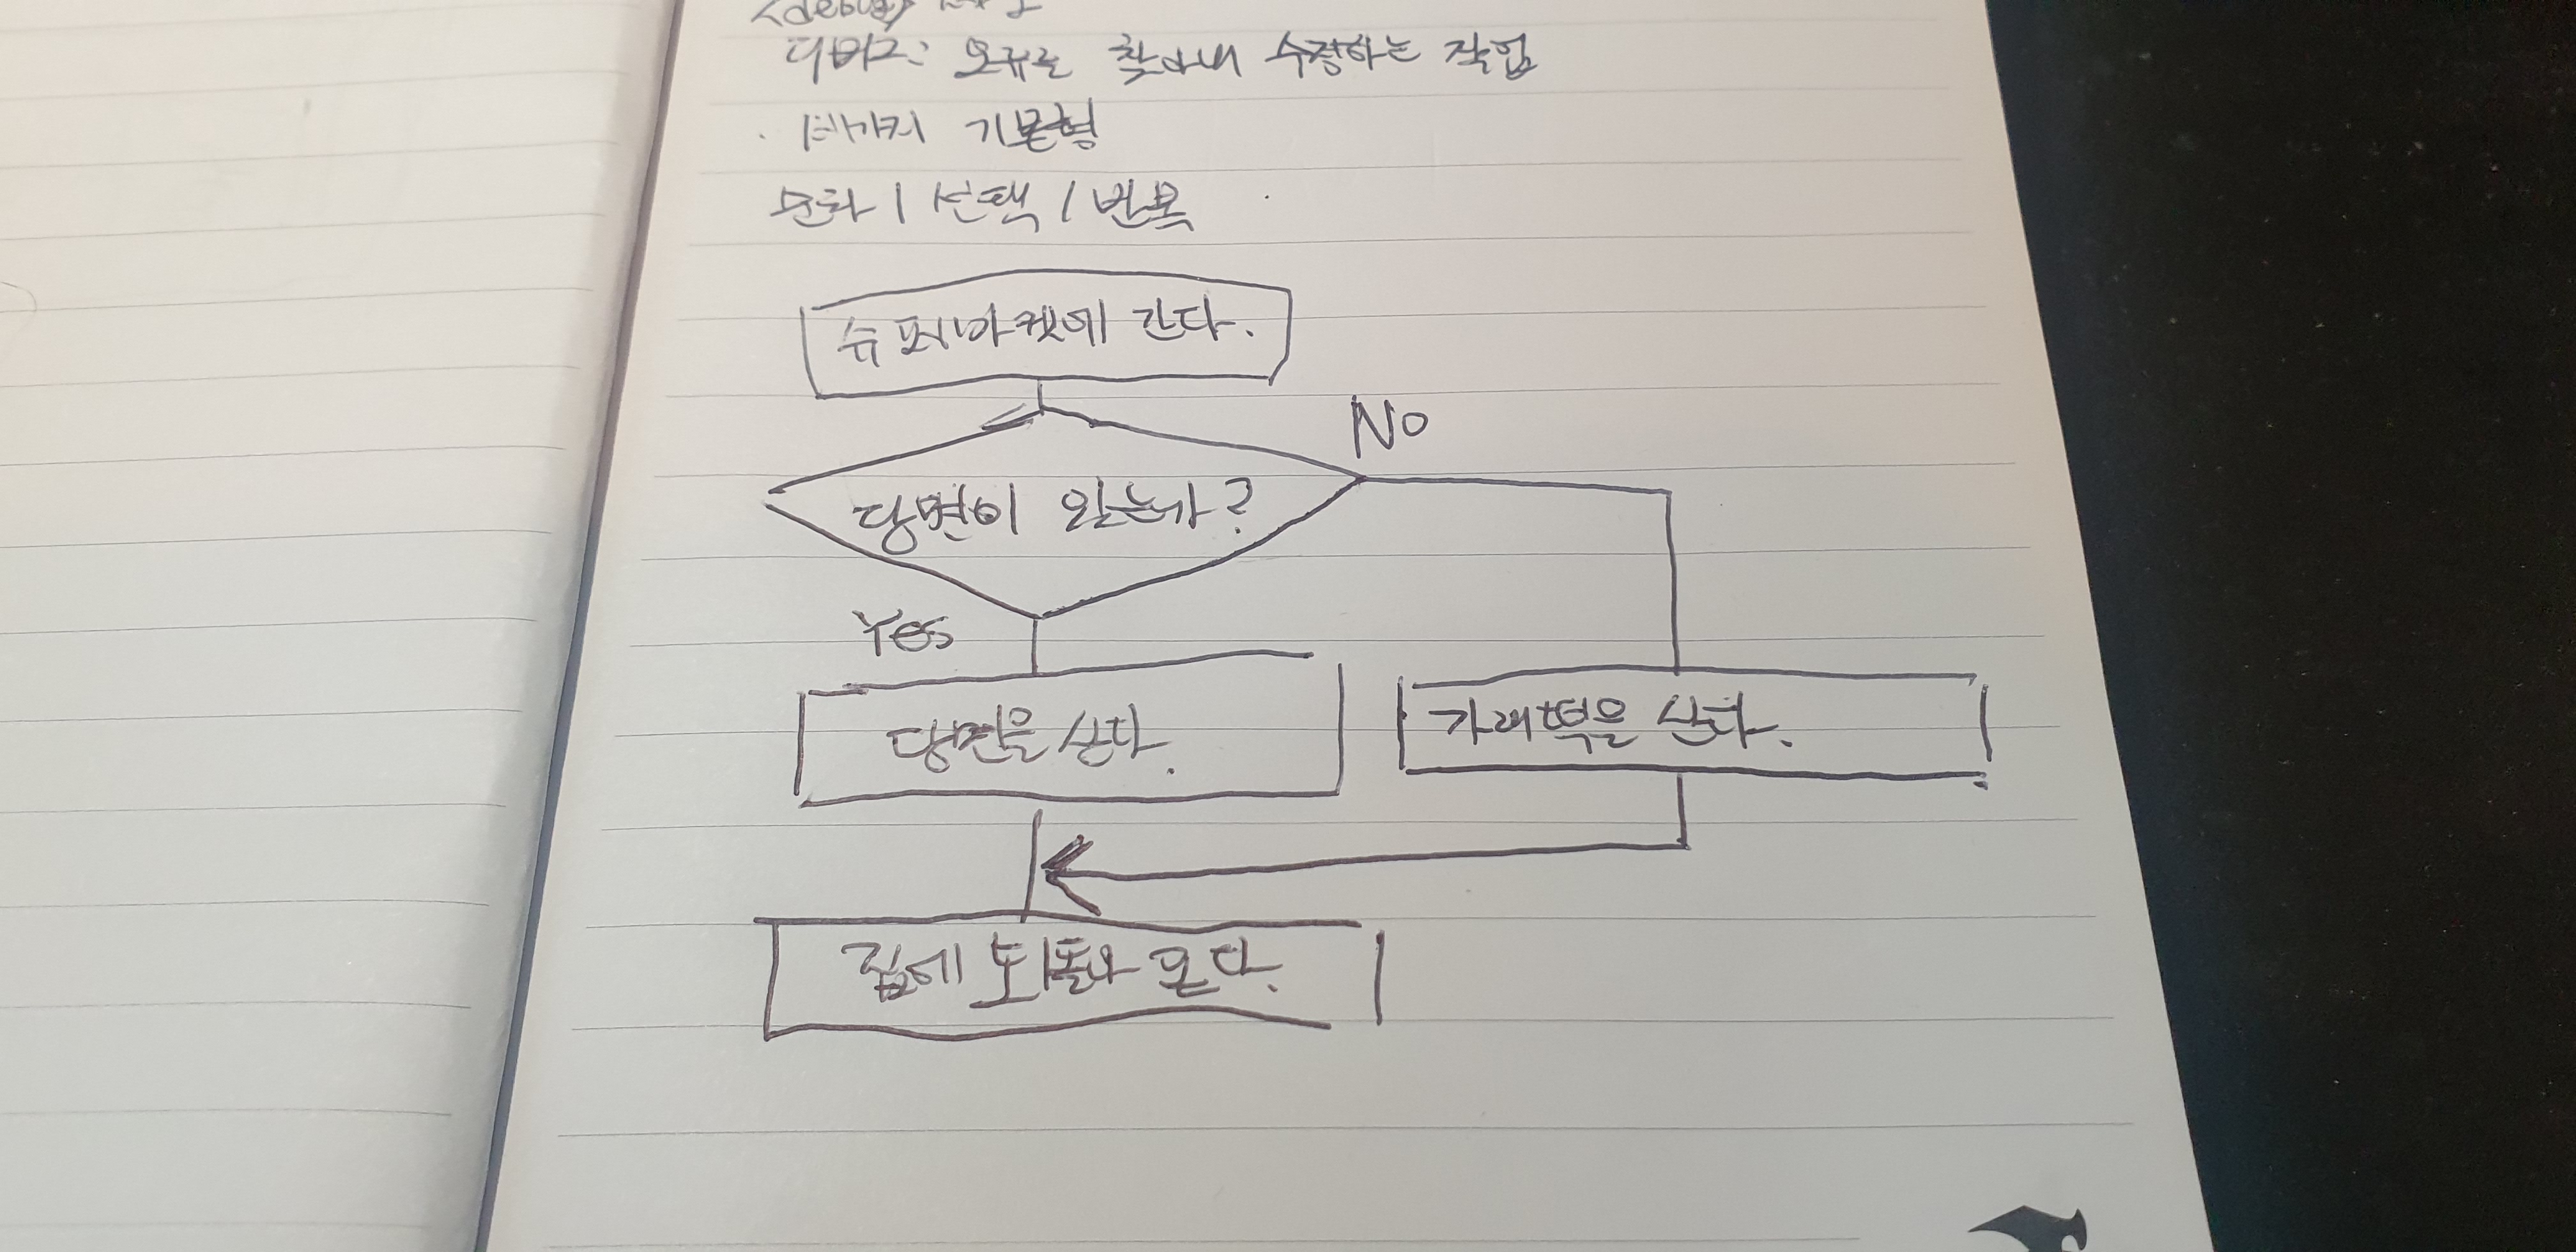 <debug>
디버그: 오류를 찾아내 수정하는 작업
· 세가지 기본형
순차 / 선택 / 반복
슈퍼마켓에 간다.
No
당면이 있는가?
Yes
당면을 산다.
가래떡을 산다.
집에 되돌아 온다.